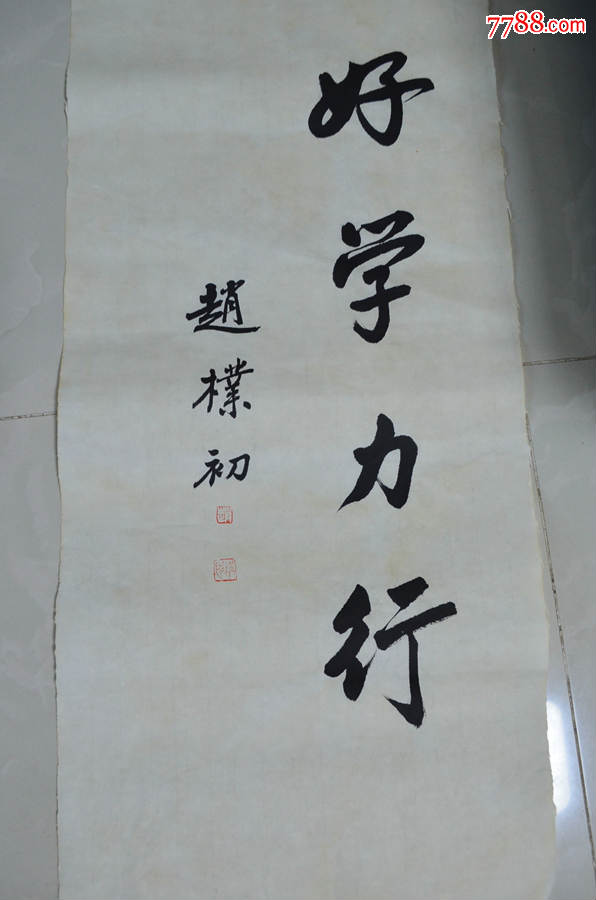 7788.com
好学力行
趙樸初